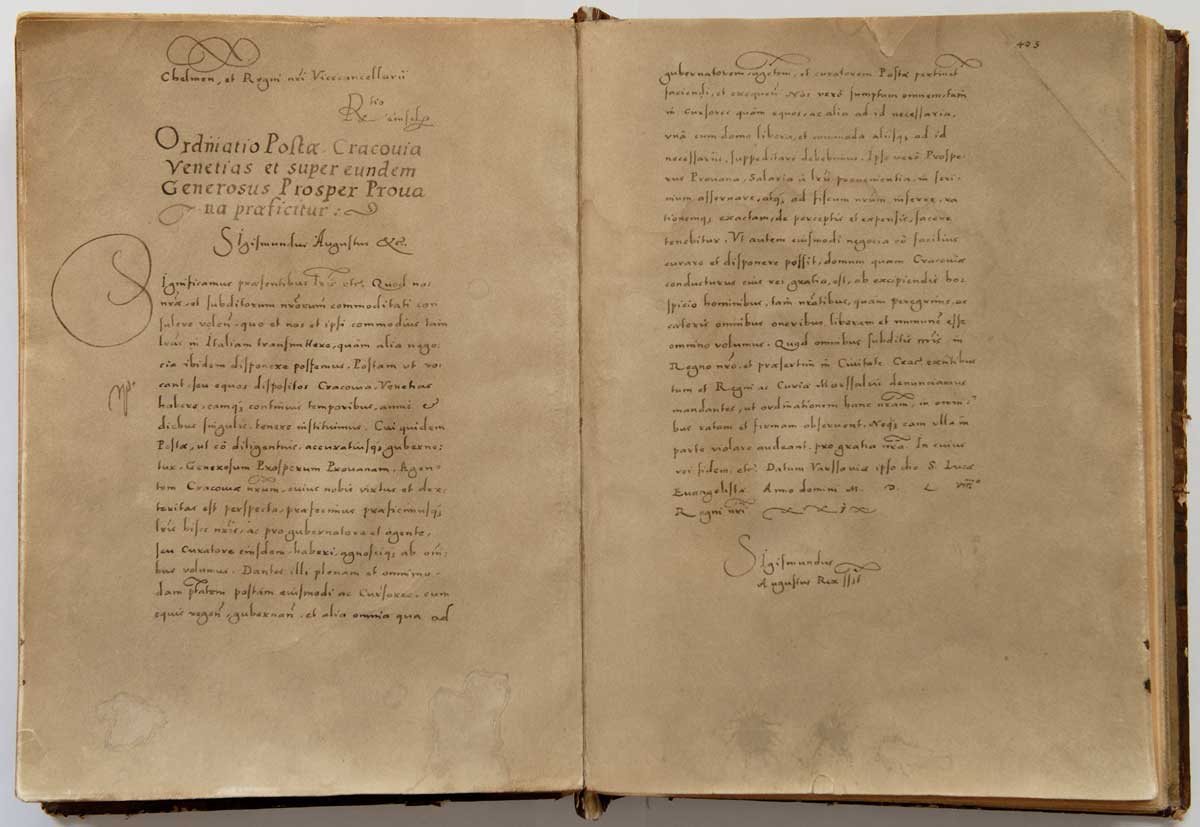 Chelmen, et Regni nri Vicecancellarii
Rtio eiusdp
Ordnatio Postæ Cracouia
Venetias et super eundem
Generosus Prosper Proua
na præficitur:
SIgismundus Augustus &c.
SIgnificamus præsentibus lris etc. Quod nos
nræ et subditorum nrorum commoditati con
sulere volen. quo et nos et ipsi commodius tam
lras in Italiam transmittere, quam alia nego
cia ibidem disponere possemus. Postam ut vo
cant seu equos dispositos Cracouia Venetias
habere, eamq; continuis temporibus, anni et
diebus singulis tenere instituimus. Cui quidem
Postæ, ut eo diligentius, accuratiusq; guberne
tur. Generosum Prosperum Prouanam, Agen
tem Cracouiæ nrum, cuius nobis virtus et dex
teritas est perspecta, præfecimus præficimusq;
lris hisce nris, ac pro gubernatore et agente,
seu Curatore eiusdem haberi, agnosciq; ab om
bus volumus. Dantes illi plenam et omnimo
dam ptatem postam eiusmodi ac Cursores, cum
equis regen, gubernan, et alia omnia quæ ad
423
gubernatorem, agetem, et curatorem Postæ pertinet
faciendi, et exequen. Nos vero sumptum omnem, tam
in Cursores quam equos, ac alia ad id necessaria,
vna cum domo libera, et commoda aliisq; ad id
necessariis, suppeditare debebimus. Ipse vero Prospe
rus Prouana, Salaria a lris prouenientia, in scri
nium asseruare, atq; ad fiscum nrum inferre, ra
tionemq; exactam, de perceptis et expensis, facere
tenebitur. Vt autem eiusmodi negocia eo facilius
curare et disponere possit, domum quam Cracouiæ
conducturus eius rei gratia, est, ab excipiendis ho
spicio hominibus, tam nratibus, quam peregrinis, ac
cæteris omnibus oneribus, liberam et immune esse
omnino volumus. Quod omnibus subditis nris, in
Regno nro, et præsertim in Ciuitate Crac. exntibus
tum et Regni ac Curiæ Marssalcis denunciamus
mandantes, ut ordinationem hanc nram, in omni
bus ratam et firmam obseruent. Neq; eam ulla in
parte violare audeant, pro gratia nra. In cuius
rei fidem, etc. Datum Varssouiæ ipso die S. Lucæ
Euangelistæ. Anno domini M. D. L VIII°
Regni nri XXIX
SIgismundus
Augustus Rex sst